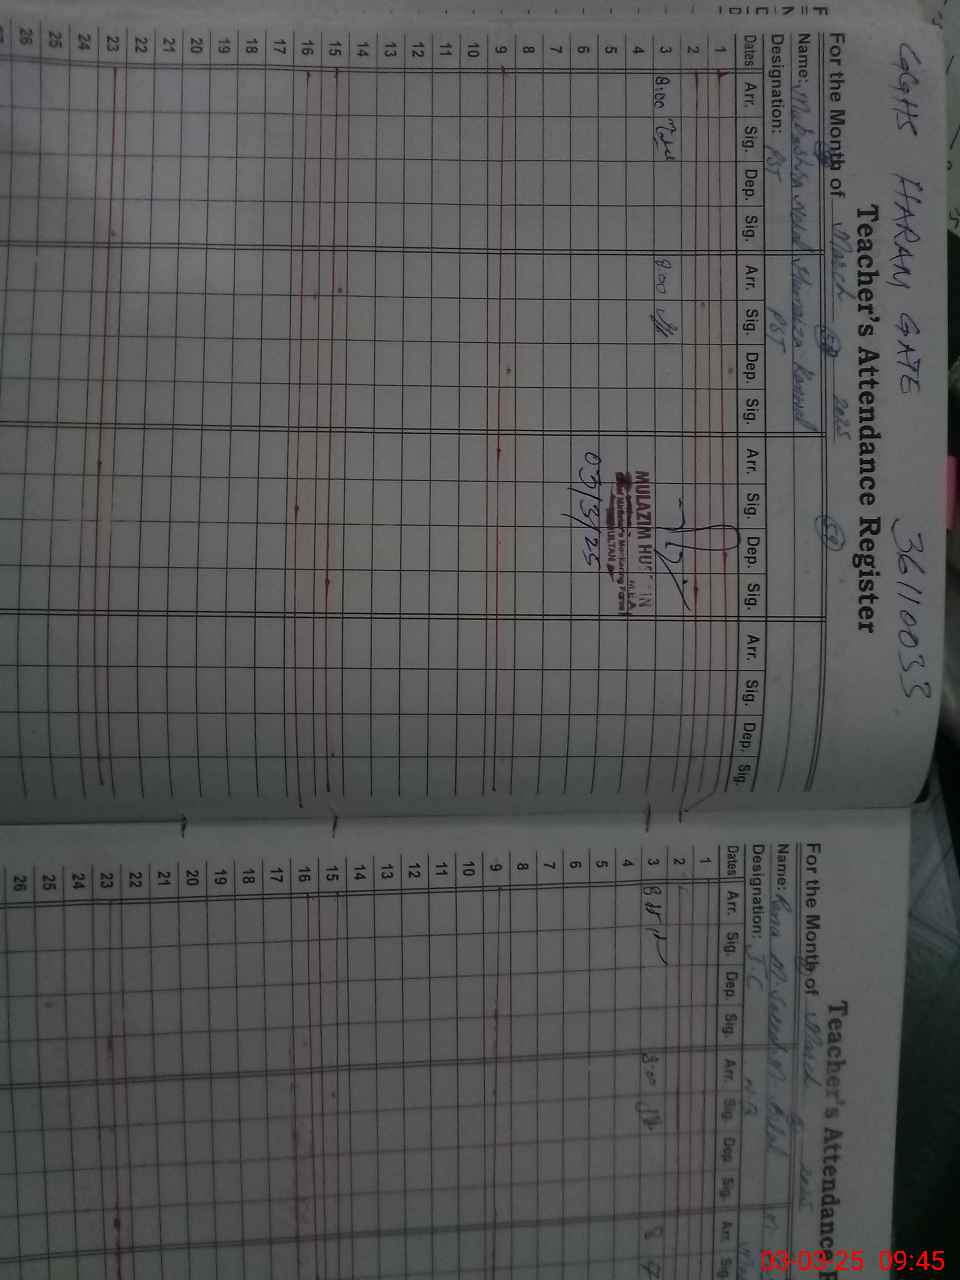 GGHS HARAM GATE 36110033
Teacher's Attendance Register
For the Month of March 2025
Name: Mubashra Noor Humaira Kanwal
Designation: PST PST
Dates Arr. Sig. Dep. Sig. Arr. Sig. Dep. Sig. Arr. Sig. Dep. Sig. Arr. Sig. Dep. Sig.
1
2
3 8:00 8:00
4
5
6
7
8
9
10
11
12
13
14
15
16
17
18
19
20
21
22
23
24
25
26
MULAZIM HUSSAIN
03/3/25
Teacher's Attendance
For the Month of March 2025
Name: Rana M. Bilal
Designation: J C N Q
Dates Arr. Sig. Dep. Sig. Arr. Sig. Dep. Sig. Arr. Sig.
1
2
3 8:00 8
4
5
6
7
8
9
10
11
12
13
14
15
16
17
18
19
20
21
22
23
24
25
26
03-03-25 09:45